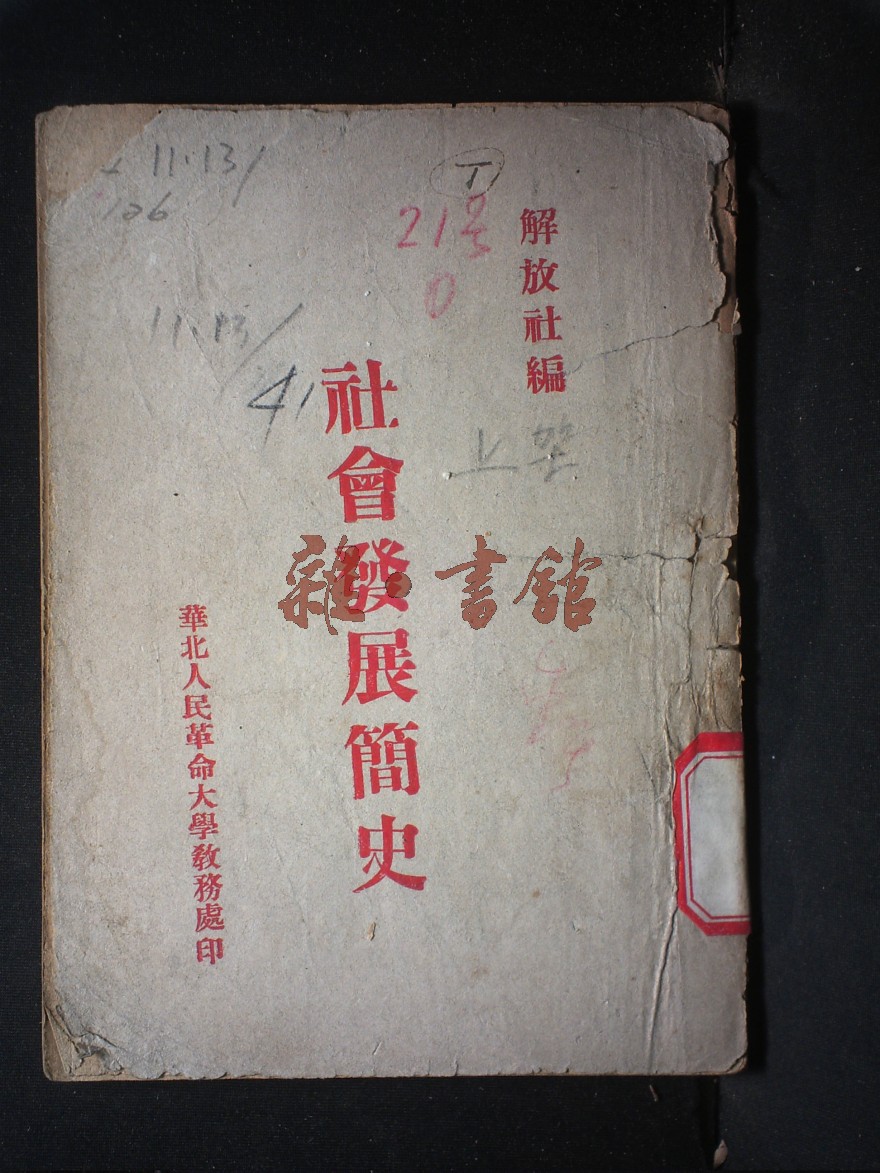 解放社編
社會發展簡史
華北人民革命大學教務處印
雜·書館
11·13/
106
T
215
0
11.13/
41
上架